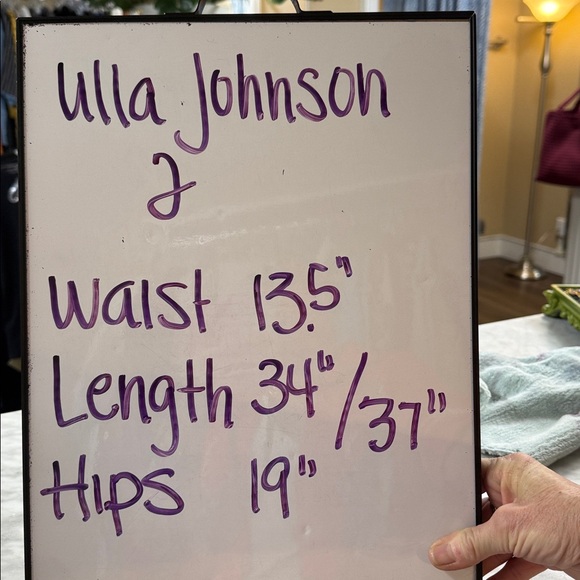 Ulla Johnson
2
Waist 13.5"
Length 34"/37"
Hips 19"